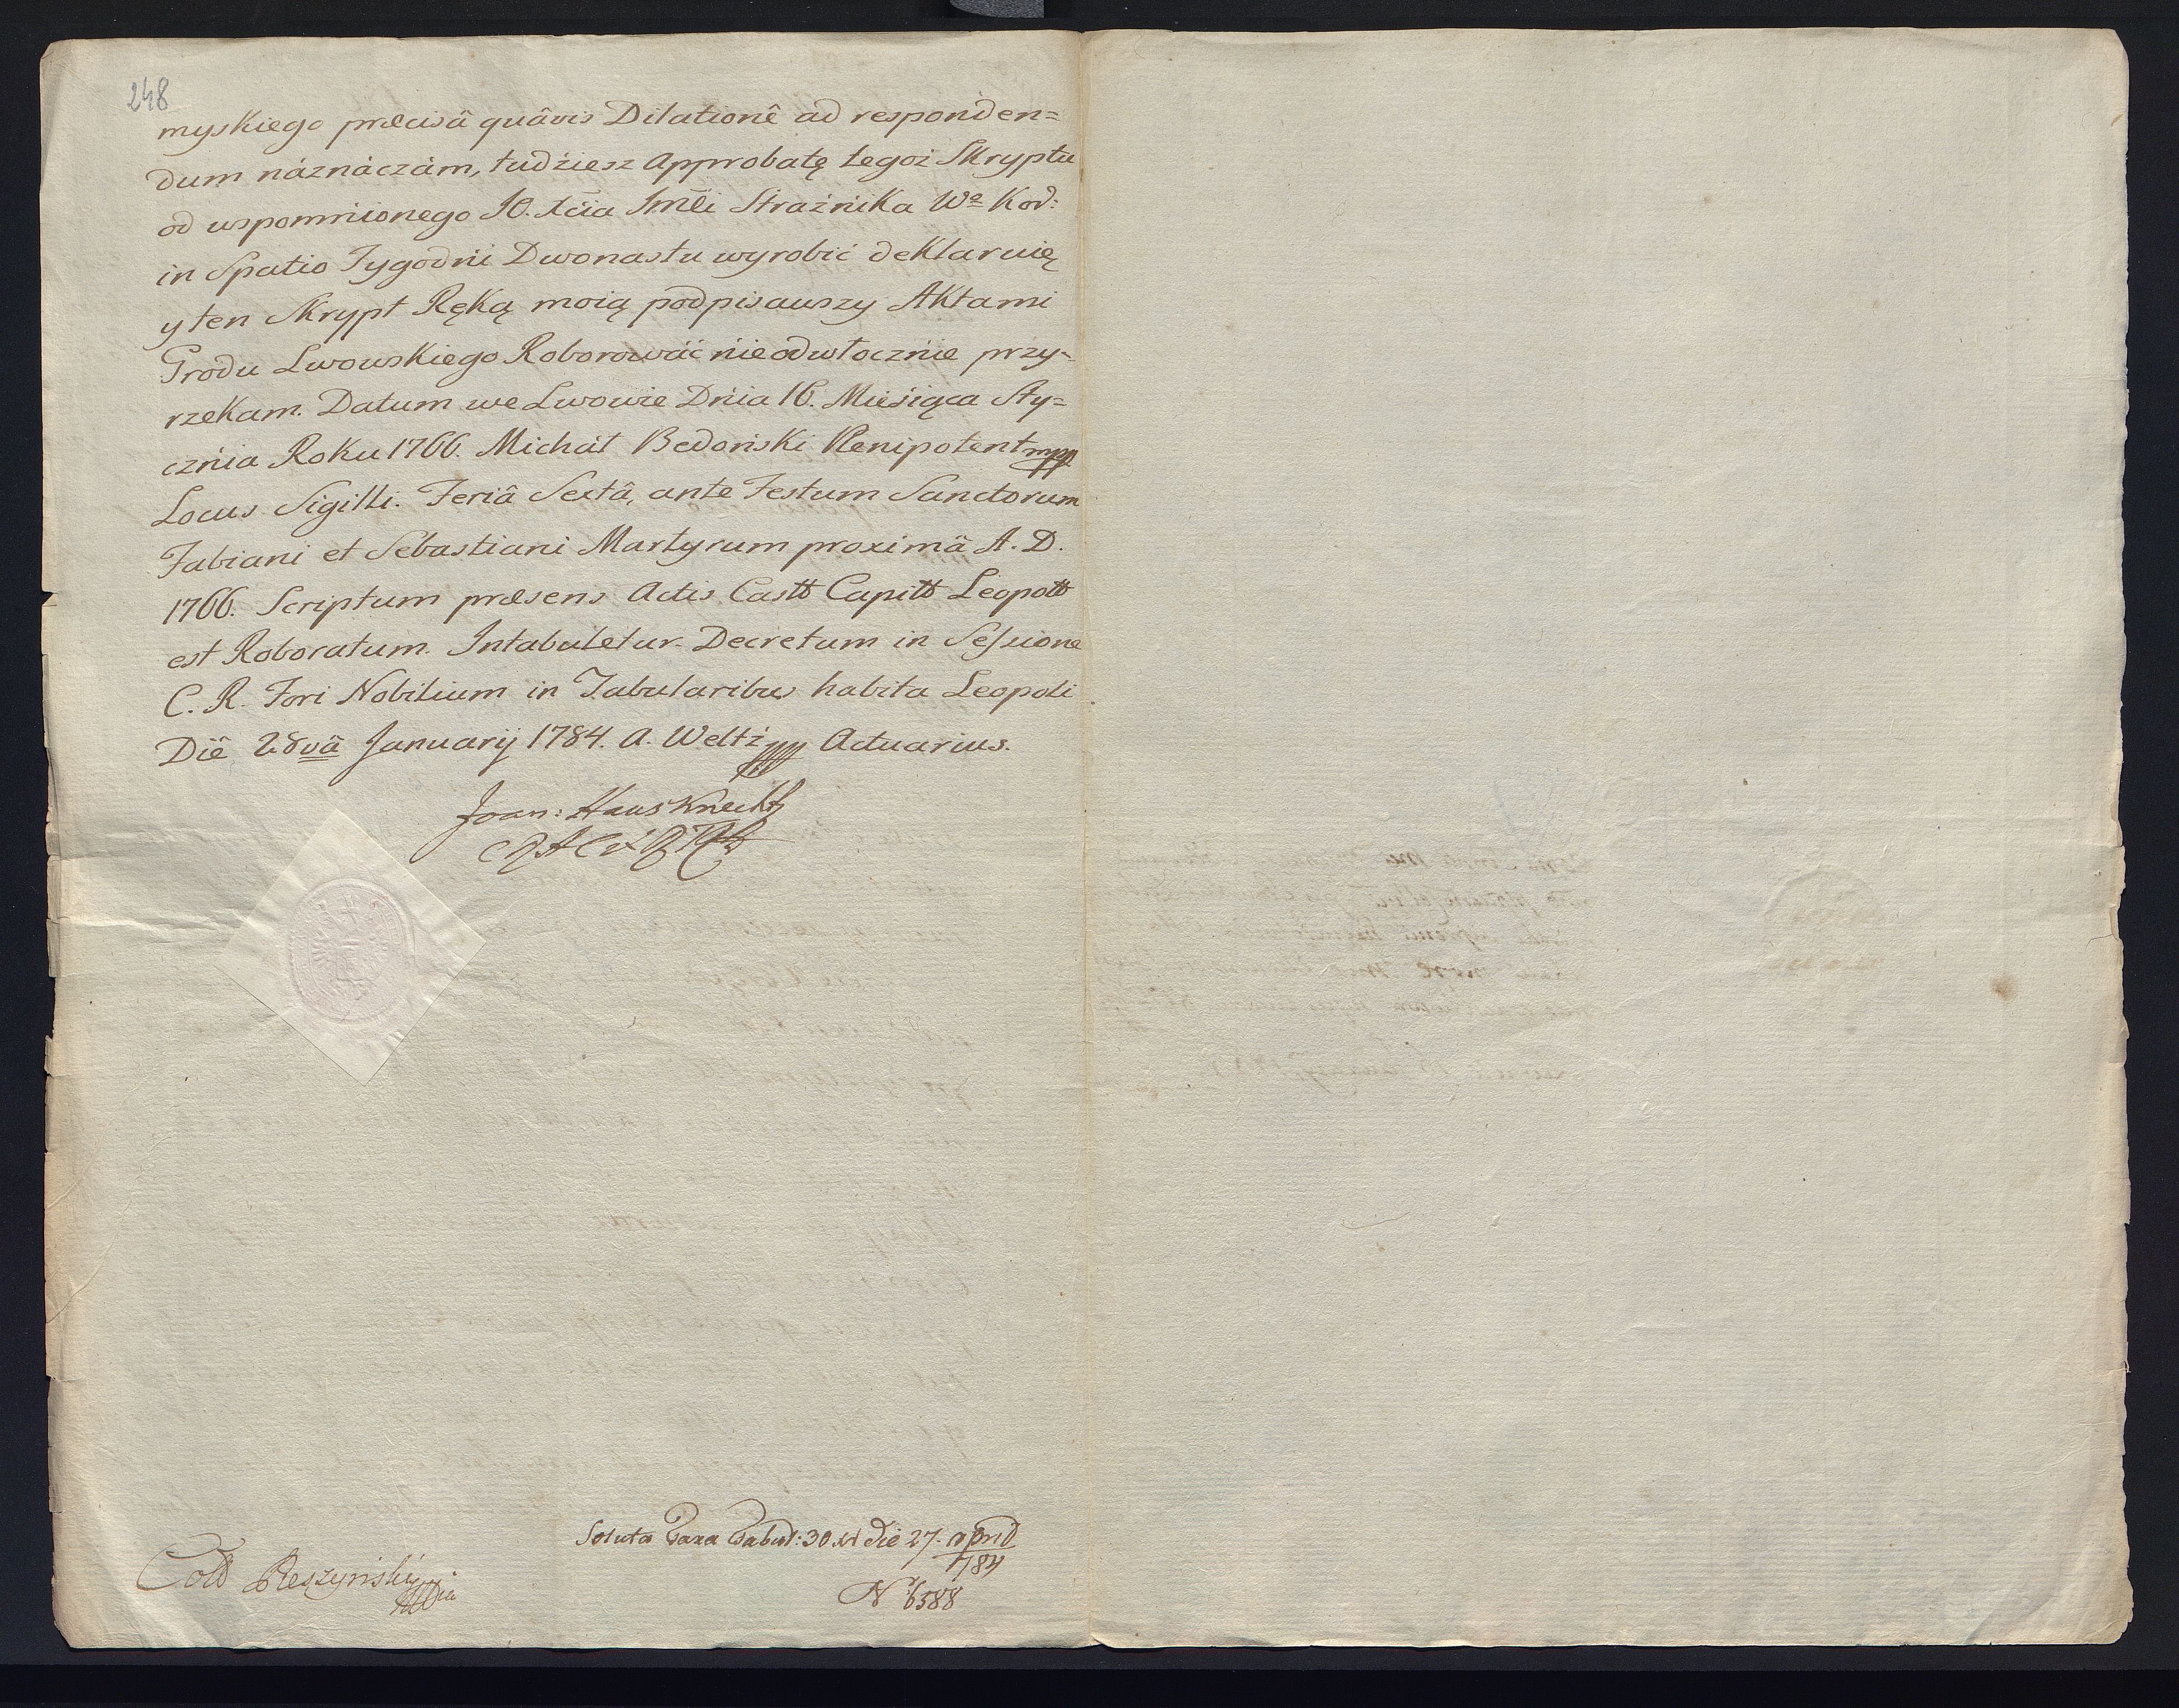 248
myskiego præcisâ quâvis Dilationê ad responden=
dum náznáczám, tudziesz Approbatę tegoż Skryptu
od wspomnionego JO. Xcia Jmći Strażnika Wo Kor:
in Spatio Tygodni Dwonastu wyrobić deklaruię
y ten Skrypt Ręką moią podpisawszy Aktami
Grodu Lwowskiego Roborowáć nieodwłocznie przy=
rzekam. Datum we Lwowie Dnia 16. Miesiąca Sty=
cznia Roku 1766. Michał Bedoński Plenipotent mpp
Locus Sigilli. Feriâ Sextâ, ante Festum Sanctorum
Fabiani et Sebastiani Martyrum proximâ A. D.
1766. Scriptum præsens Actis Castt Capitt Leopott
est Roboratum. Intabuletur. Decretum in Sessione
C. R. Fori Nobilium in Tabularibus habita Leopoli
Diê 28vâ Januarij 1784. A. Welti mpp Actuarius.
Joan: Hausknecht
Soluta Taxa Tabul: 30 xr die 27. april
784
N 6588
Coll Ręszyński